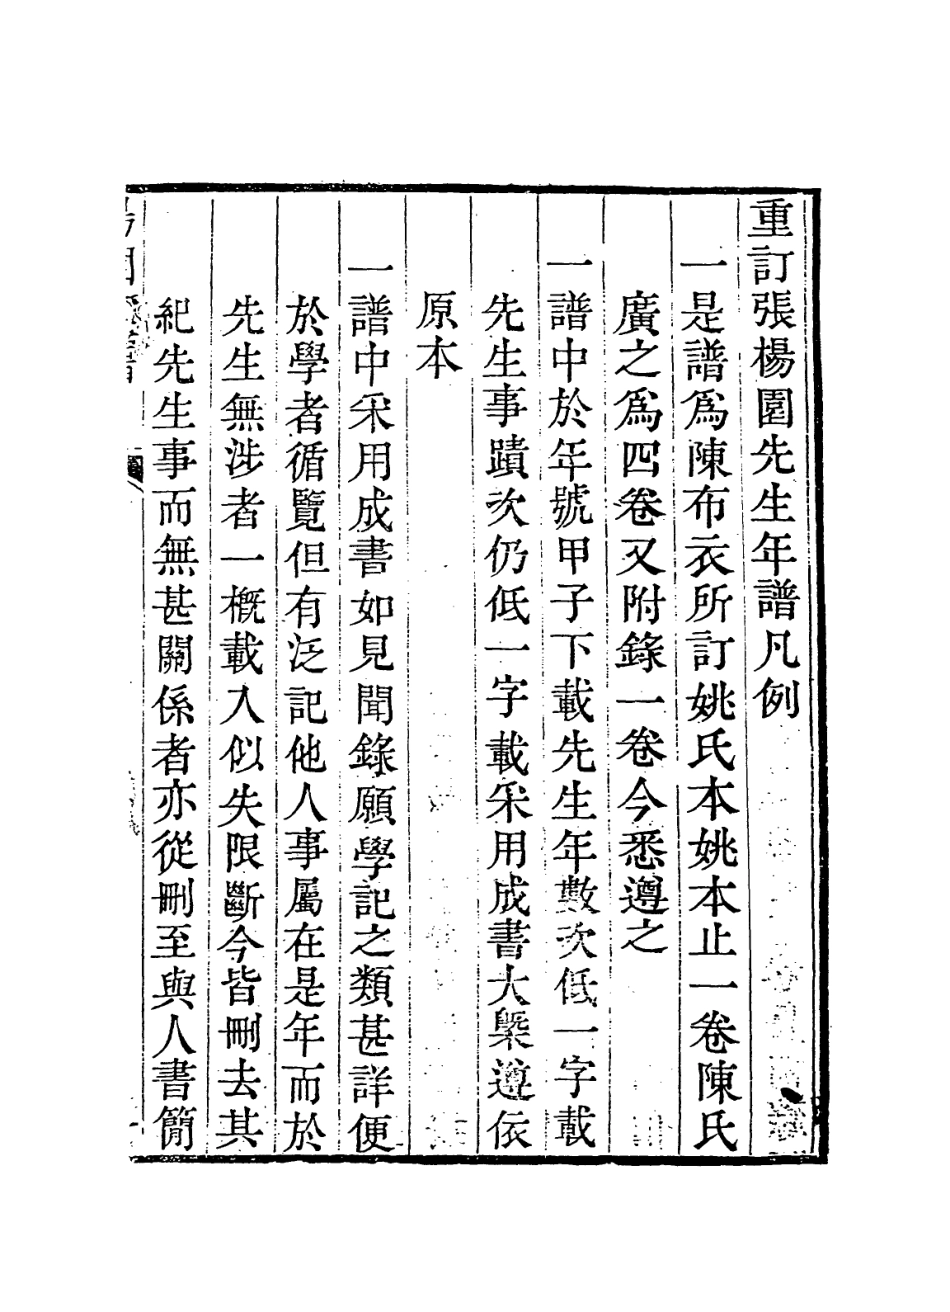 重訂張楊園先生年譜凡例
一是譜爲陳布衣所訂姚氏本姚本止一卷陳氏
廣之爲四卷又附錄一卷今悉遵之
一譜中於年號甲子下載先生年數次低一字載
先生事蹟次仍低一字載采用成書大槩遵依
原本
一譜中采用成書如見聞錄願學記之類甚詳便
於學者循覽但有泛記他人事屬在是年而於
先生無涉者一槪載入似失限斷今皆刪去其
紀先生事而無甚關係者亦從刪至與人書簡